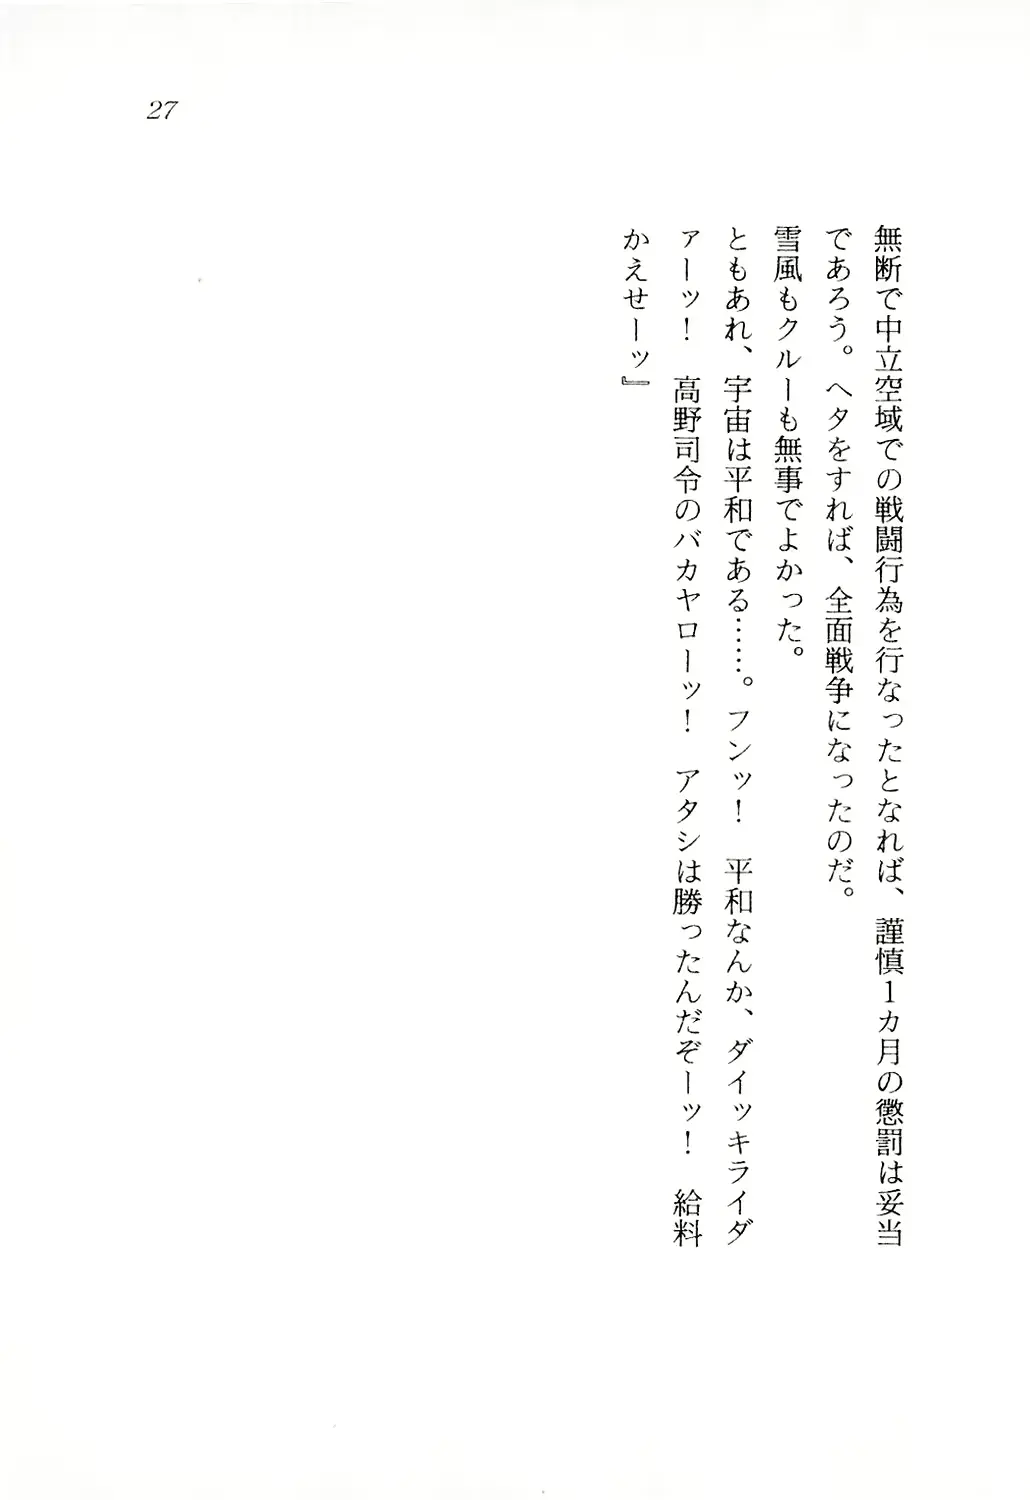 27
無断で中立空域での戦闘行為を行なったとなれば、謹慎1カ月の懲罰は妥当
であろう。ヘタをすれば、全面戦争になったのだ。
雪風もクルーも無事でよかった。
ともあれ、宇宙は平和である……。フンッ！　平和なんか、ダイッキライダ
ァーッ！　高野司令のバカヤローッ！　アタシは勝ったんだぞーッ！　給料
かえせーッ』